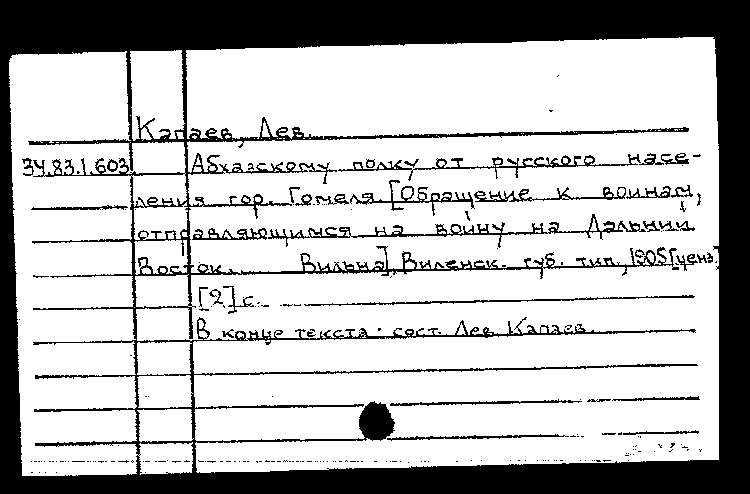 Капаев, Лев.
34.83.1.603 Абхазскому полку от русского насе-
ления гор. Гомеля. [Обращение к воинам,
отправляющимся на войну на Дальний
Восток. Вильна], Виленск. губ. тип., 1905 [ценз.]
[2] с.
В конце текста: сост. Лев Капаев.